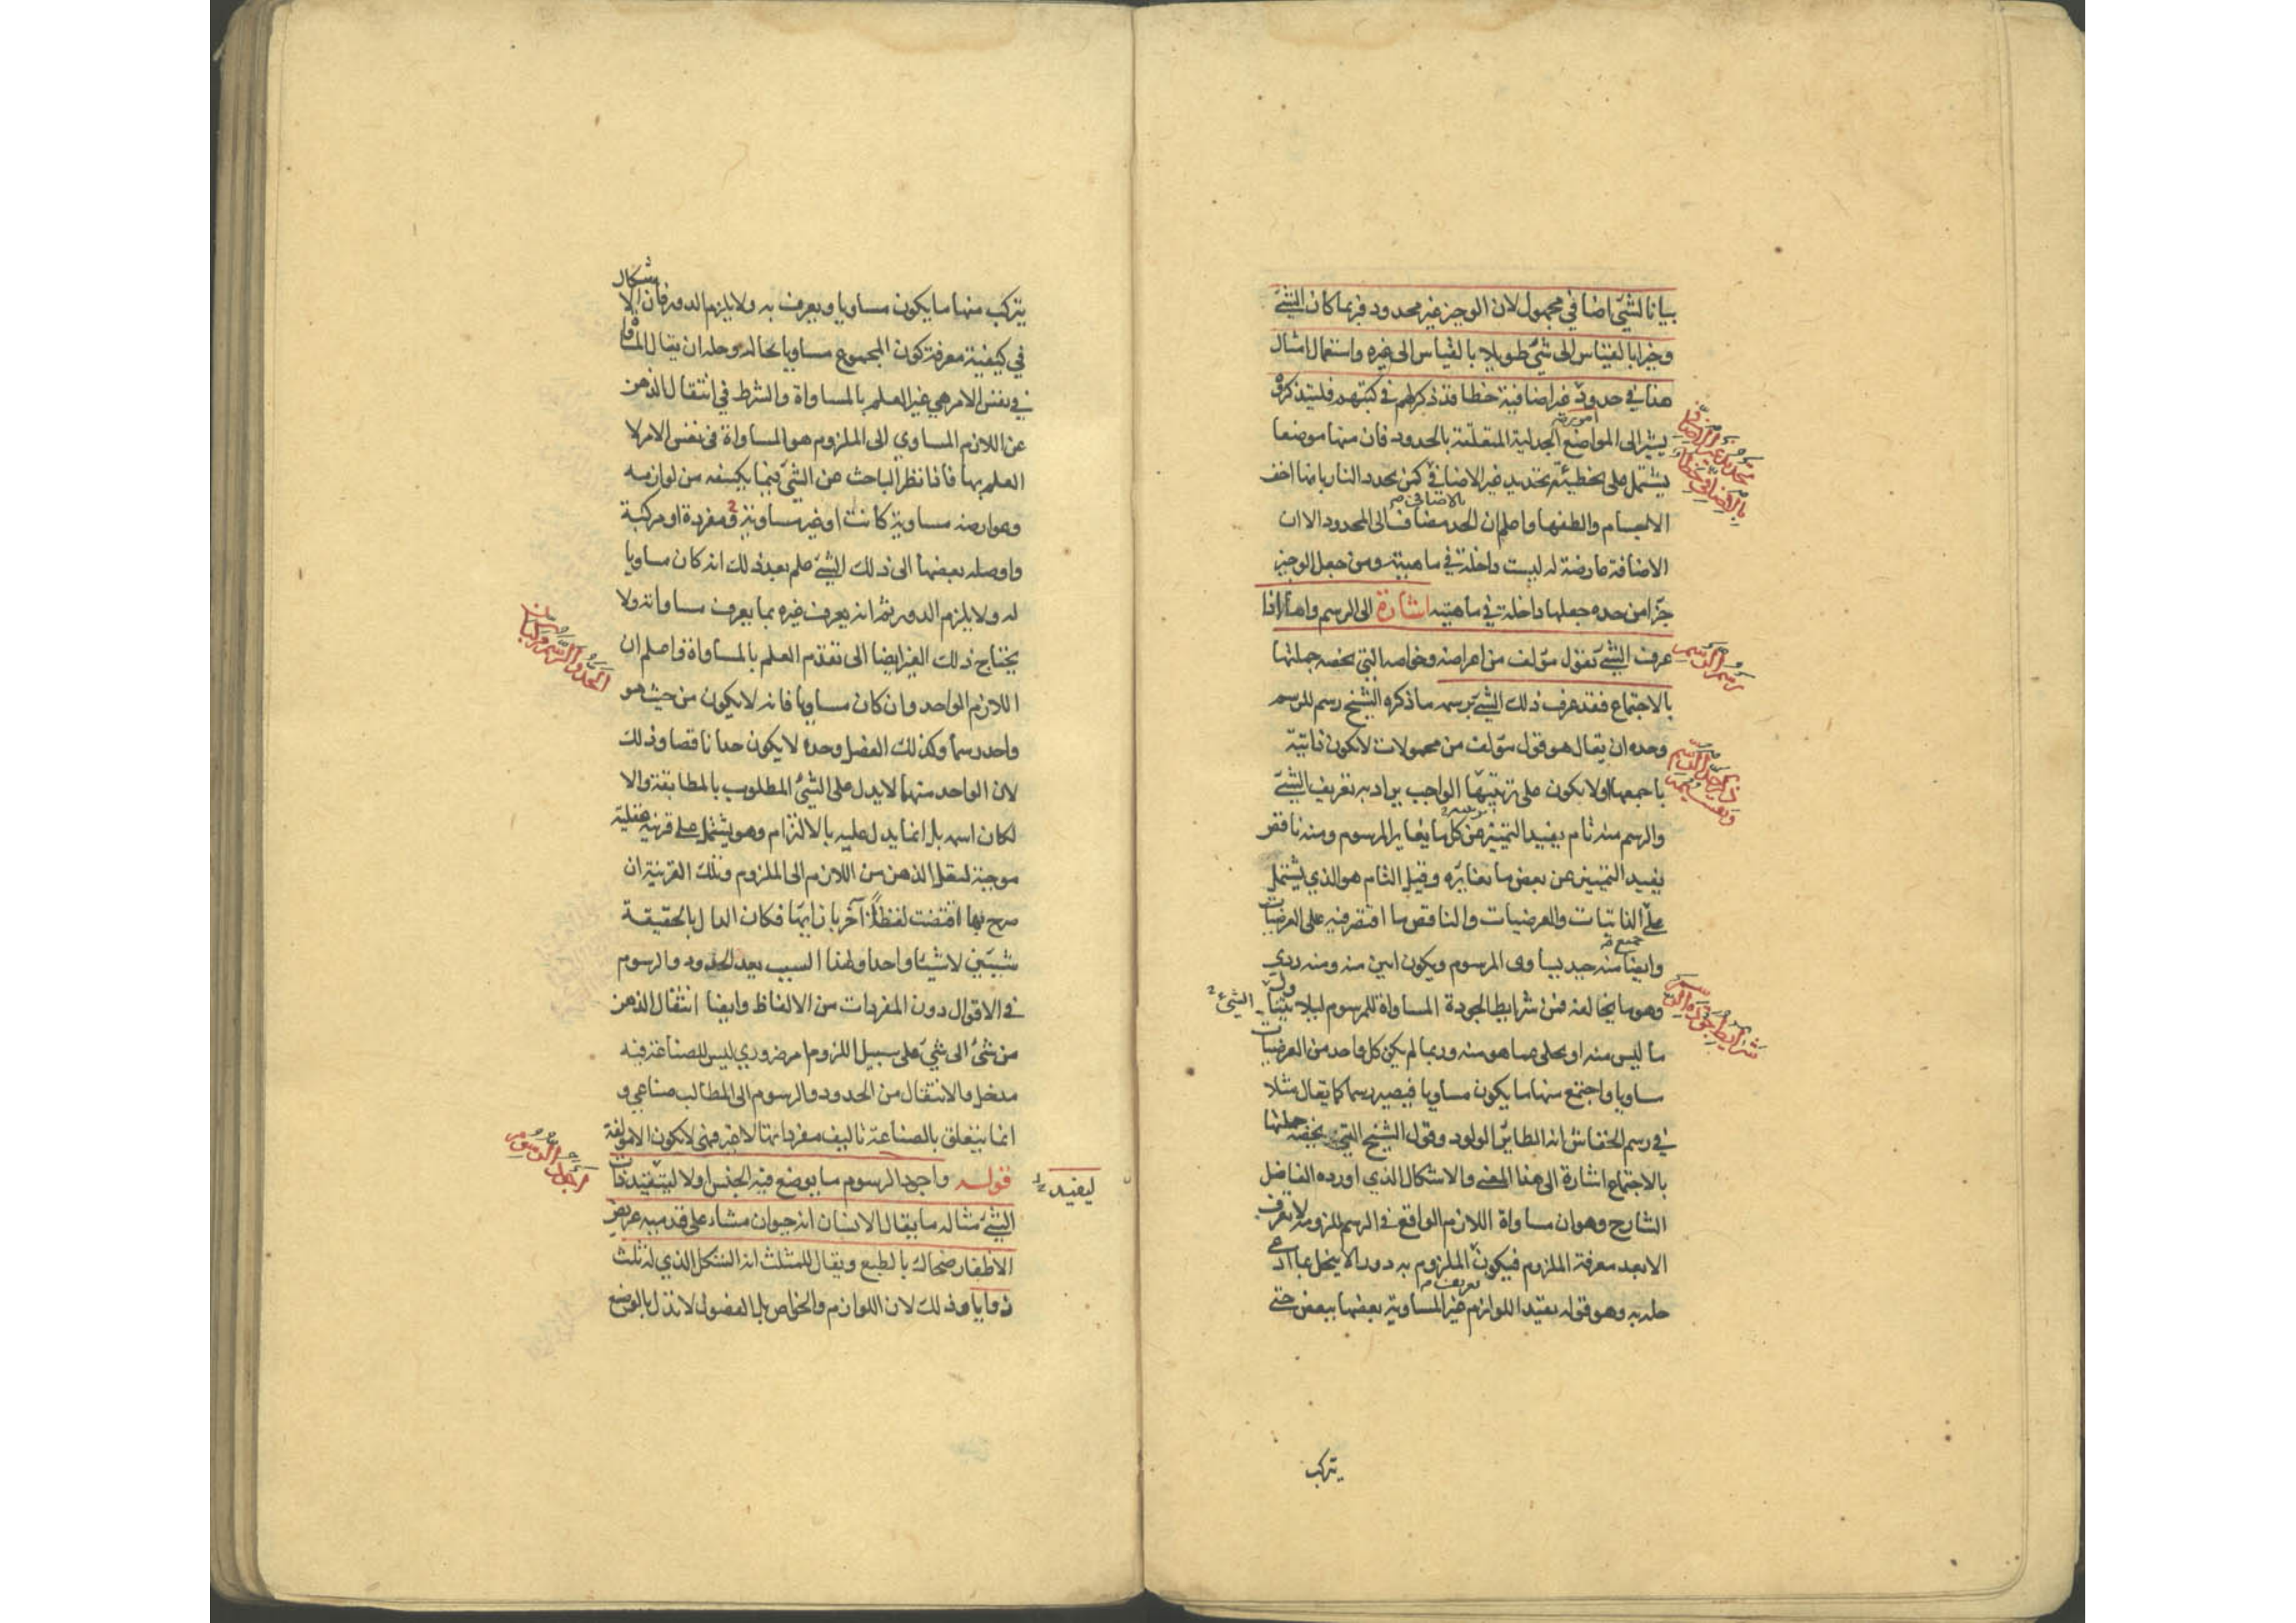 بيانا لشيء اضافي مجهول لان الوجيز غير محدود فربما كان الشئ
وجيزا بالقياس الى شئ طويلا بالقياس الى غيره واستعمال امثال
هذا في حدود امور غير اضافية خطا قد ذكر لهم في كتبهم فليتذكره
يشير الى المواضع الجدلية المتعلقة بالحدود فان منها موضعا
يشتمل على تخطئة تحديد غير الاضافي بالاضافي كمن يحدد النار بانها اخف
الاجسام والطفها واعلم ان الحد مضاف الى المحدود الا ان
الاضافة عارضة له ليست داخلة في ماهيته ومن جعل الوجيز
جزا من حده جعلها داخلة في ماهيته اشارة الى الرسم واما اذا
عرف الشئ بقول مؤلف من اعراضه وخواصه التي تخصه جملتها
بالاجتماع فقد عرف ذلك الشئ برسمه ما ذكره الشيخ رسم للرسم
وحده ان يقال هو قول مؤلف من محمولات لا تكون ذاتية
باجمعها او لا يكون على ترتيبها الواجب يراد به تعريف الشئ
والرسم منه تام يفيد التمييز عن كل ما يغاير المرسوم ومنه ناقص
يفيد التمييز عن بعض ما يغايره وقيل التام هو الذي يشتمل
على الذاتيات والعرضيات والناقص ما اقتصر فيه على العرضيات
وايضا منه جيد يساوى المرسوم ويكون ابين منه ومنه ردي
وهو ما يخالفه فمن شرايط الجودة المساواة للمرسوم ليلا يتناول
ما ليس منه او يخلى عما هو منه وربما لم يكن كل واحد من العرضيات
مساويا واجتمع منها ما يكون مساويا فيصير رسما كما يقال مثلا
في رسم الخفاش انه الطاير الولود وقول الشيخ التي تخصه جملتها
بالاجتماع اشارة الى هذا المعنى والاشكال الذي اورده الفاضل
الشارح وهو ان مساواة اللازم الواقع في الرسم للزومه لا تعرف
الا بعد معرفة الملزوم فيكون تعريف الملزوم به دورا لا ينحل بما ادعى
حله به وهو قوله بقيد اللوازم غير المساوية بعضها ببعض حتى
يتركب
رسم الرسم
شرايط جودة الرسم
الشئ
يتركب منها ما يكون مساويا ويعرف به ولا يلزم الدور فان الاشكال
في كيفية معرفة كون المجموع مساويا بحاله وحله ان يقال المساواة
في نفس الامر هي غير العلم بالمساواة والشرط في انتقال الذهن
عن اللازم المساوي الى الملزوم هو المساواة في نفس الامر لا
العلم بها فاذا نظر الباحث عن الشئ فيما يكتنفه من لوازمه
وعوارضه مساوية كانت او غير مساوية ومفردة او مركبة
واوصله بعضها الى ذلك الشئ علم بعد ذلك انه كان مساويا
له ولا يلزم الدور ثم انه يعرف غيره بما يعرف مساواته ولا
يحتاج ذلك الغير ايضا الى تقدم العلم بالمساواة واعلم ان
اللازم الواحد وان كان مساويا فانه لا يكون من حيث هو
واحد رسما وكذلك الفصل وحده لا يكون حدا ناقصا وذلك
لان الواحد منهما لا يدل على الشئ المطلوب بالمطابقة والا
لكان اسمه بل انما يدل عليه بالالتزام وهو يشتمل على قرينة عقلية
موجبة لنقل الذهن من اللازم الى الملزوم وتلك القرينة ان
صرح بها اقتضت لفظا آخر بازايها فكان الدال بالحقيقة
شيئين لا شيئا واحدا ولهذا السبب يعد الحدود والرسوم
في الاقوال دون المفردات من الالفاظ وايضا انتقال الذهن
من شئ الى شئ على سبيل اللزوم امر ضروري ليس للصناعة فيه
مدخل والانتقال من الحدود والرسوم الى المطالب صناعي و
انما يتعلق بالصناعة تاليف مفرداتها لا غير فهى لا تكون الا مؤلفة
قوله واجود الرسوم ما يوضع فيه الجنس اولا ليتقيد ذات
الشئ مثاله ما يقال الانسان انه حيوان مشاء على قدميه عريض
الاظفار ضحاك بالطبع ويقال للمثلث انه الشكل الذي له ثلث
زوايا وذلك لان اللوازم والخواص بل الفصول لا تدل بالوضع
ليفيد
اجود الرسوم